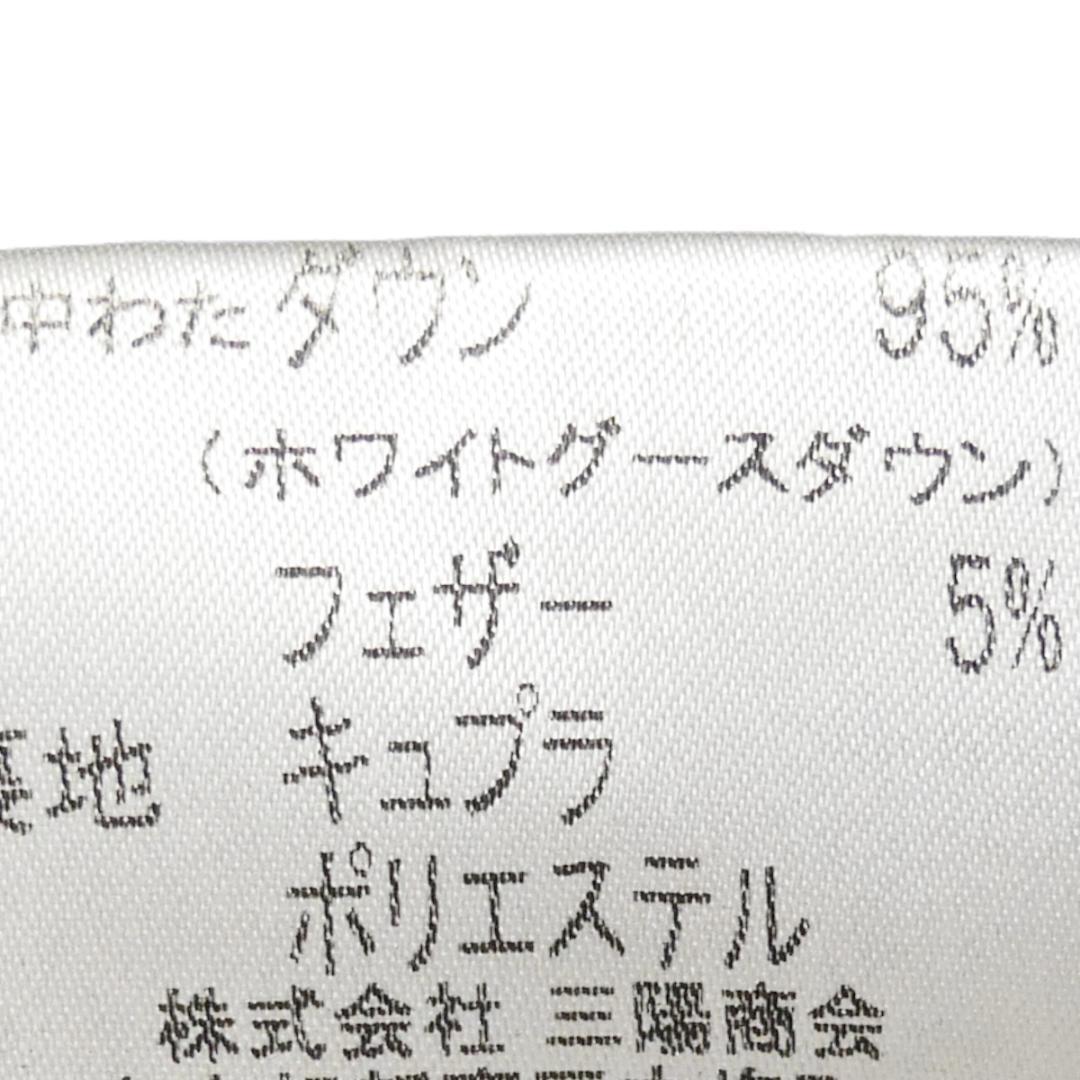 中わた ダウン 95%
(ホワイトグースダウン)
フェザー 5%
裏地 キュプラ
ポリエステル
株式会社 三陽商会